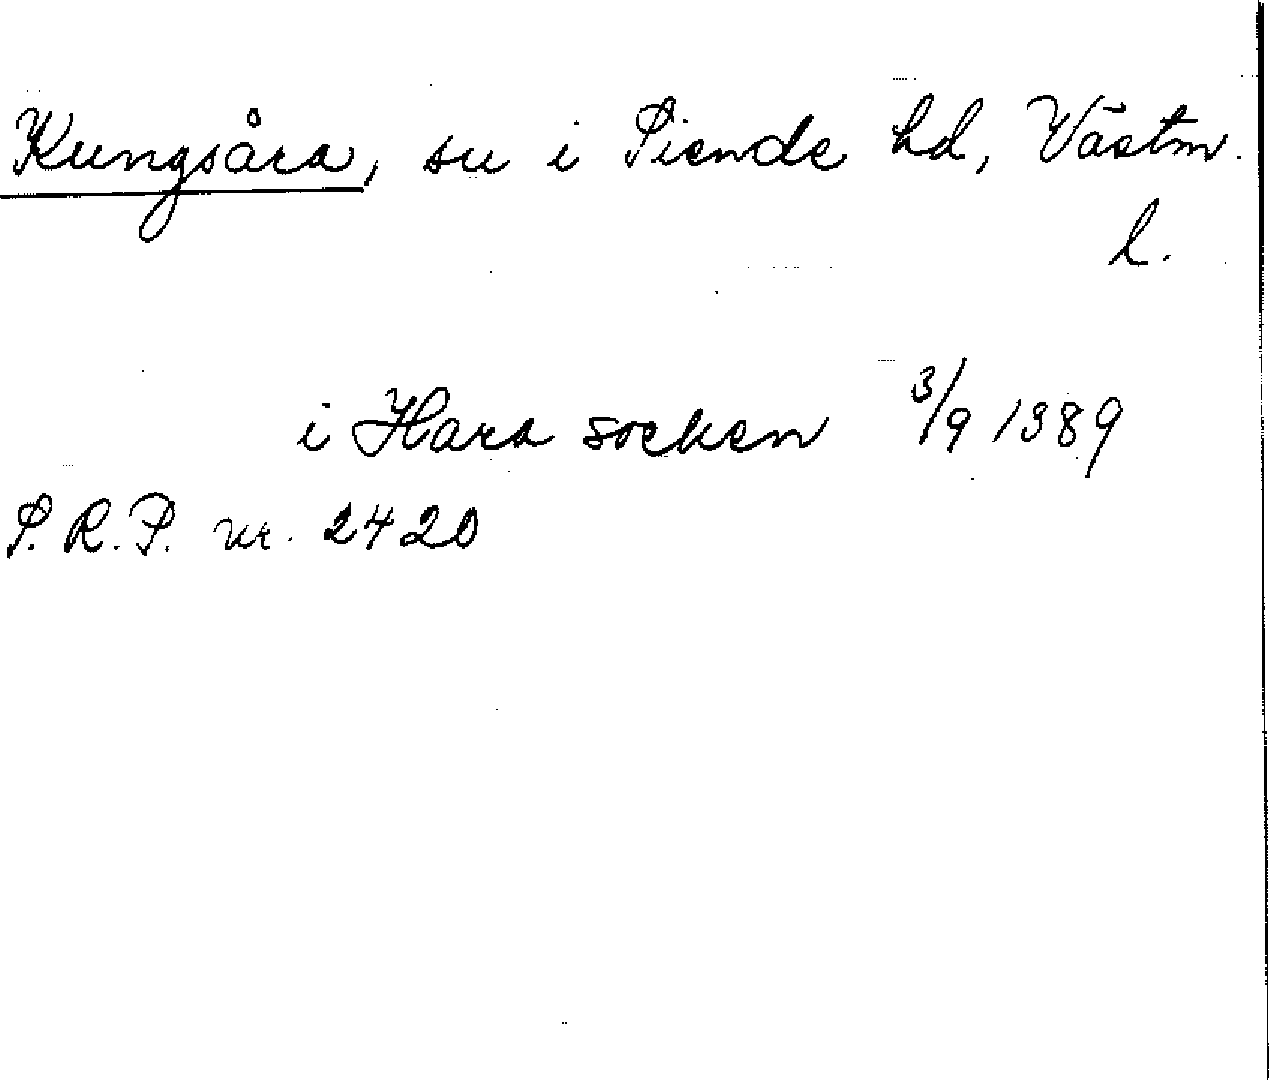 Kungsåra, sn i Siende hd, Västm.
l.
i Hara socken 3/9 1389
S.R.P. nr. 2420